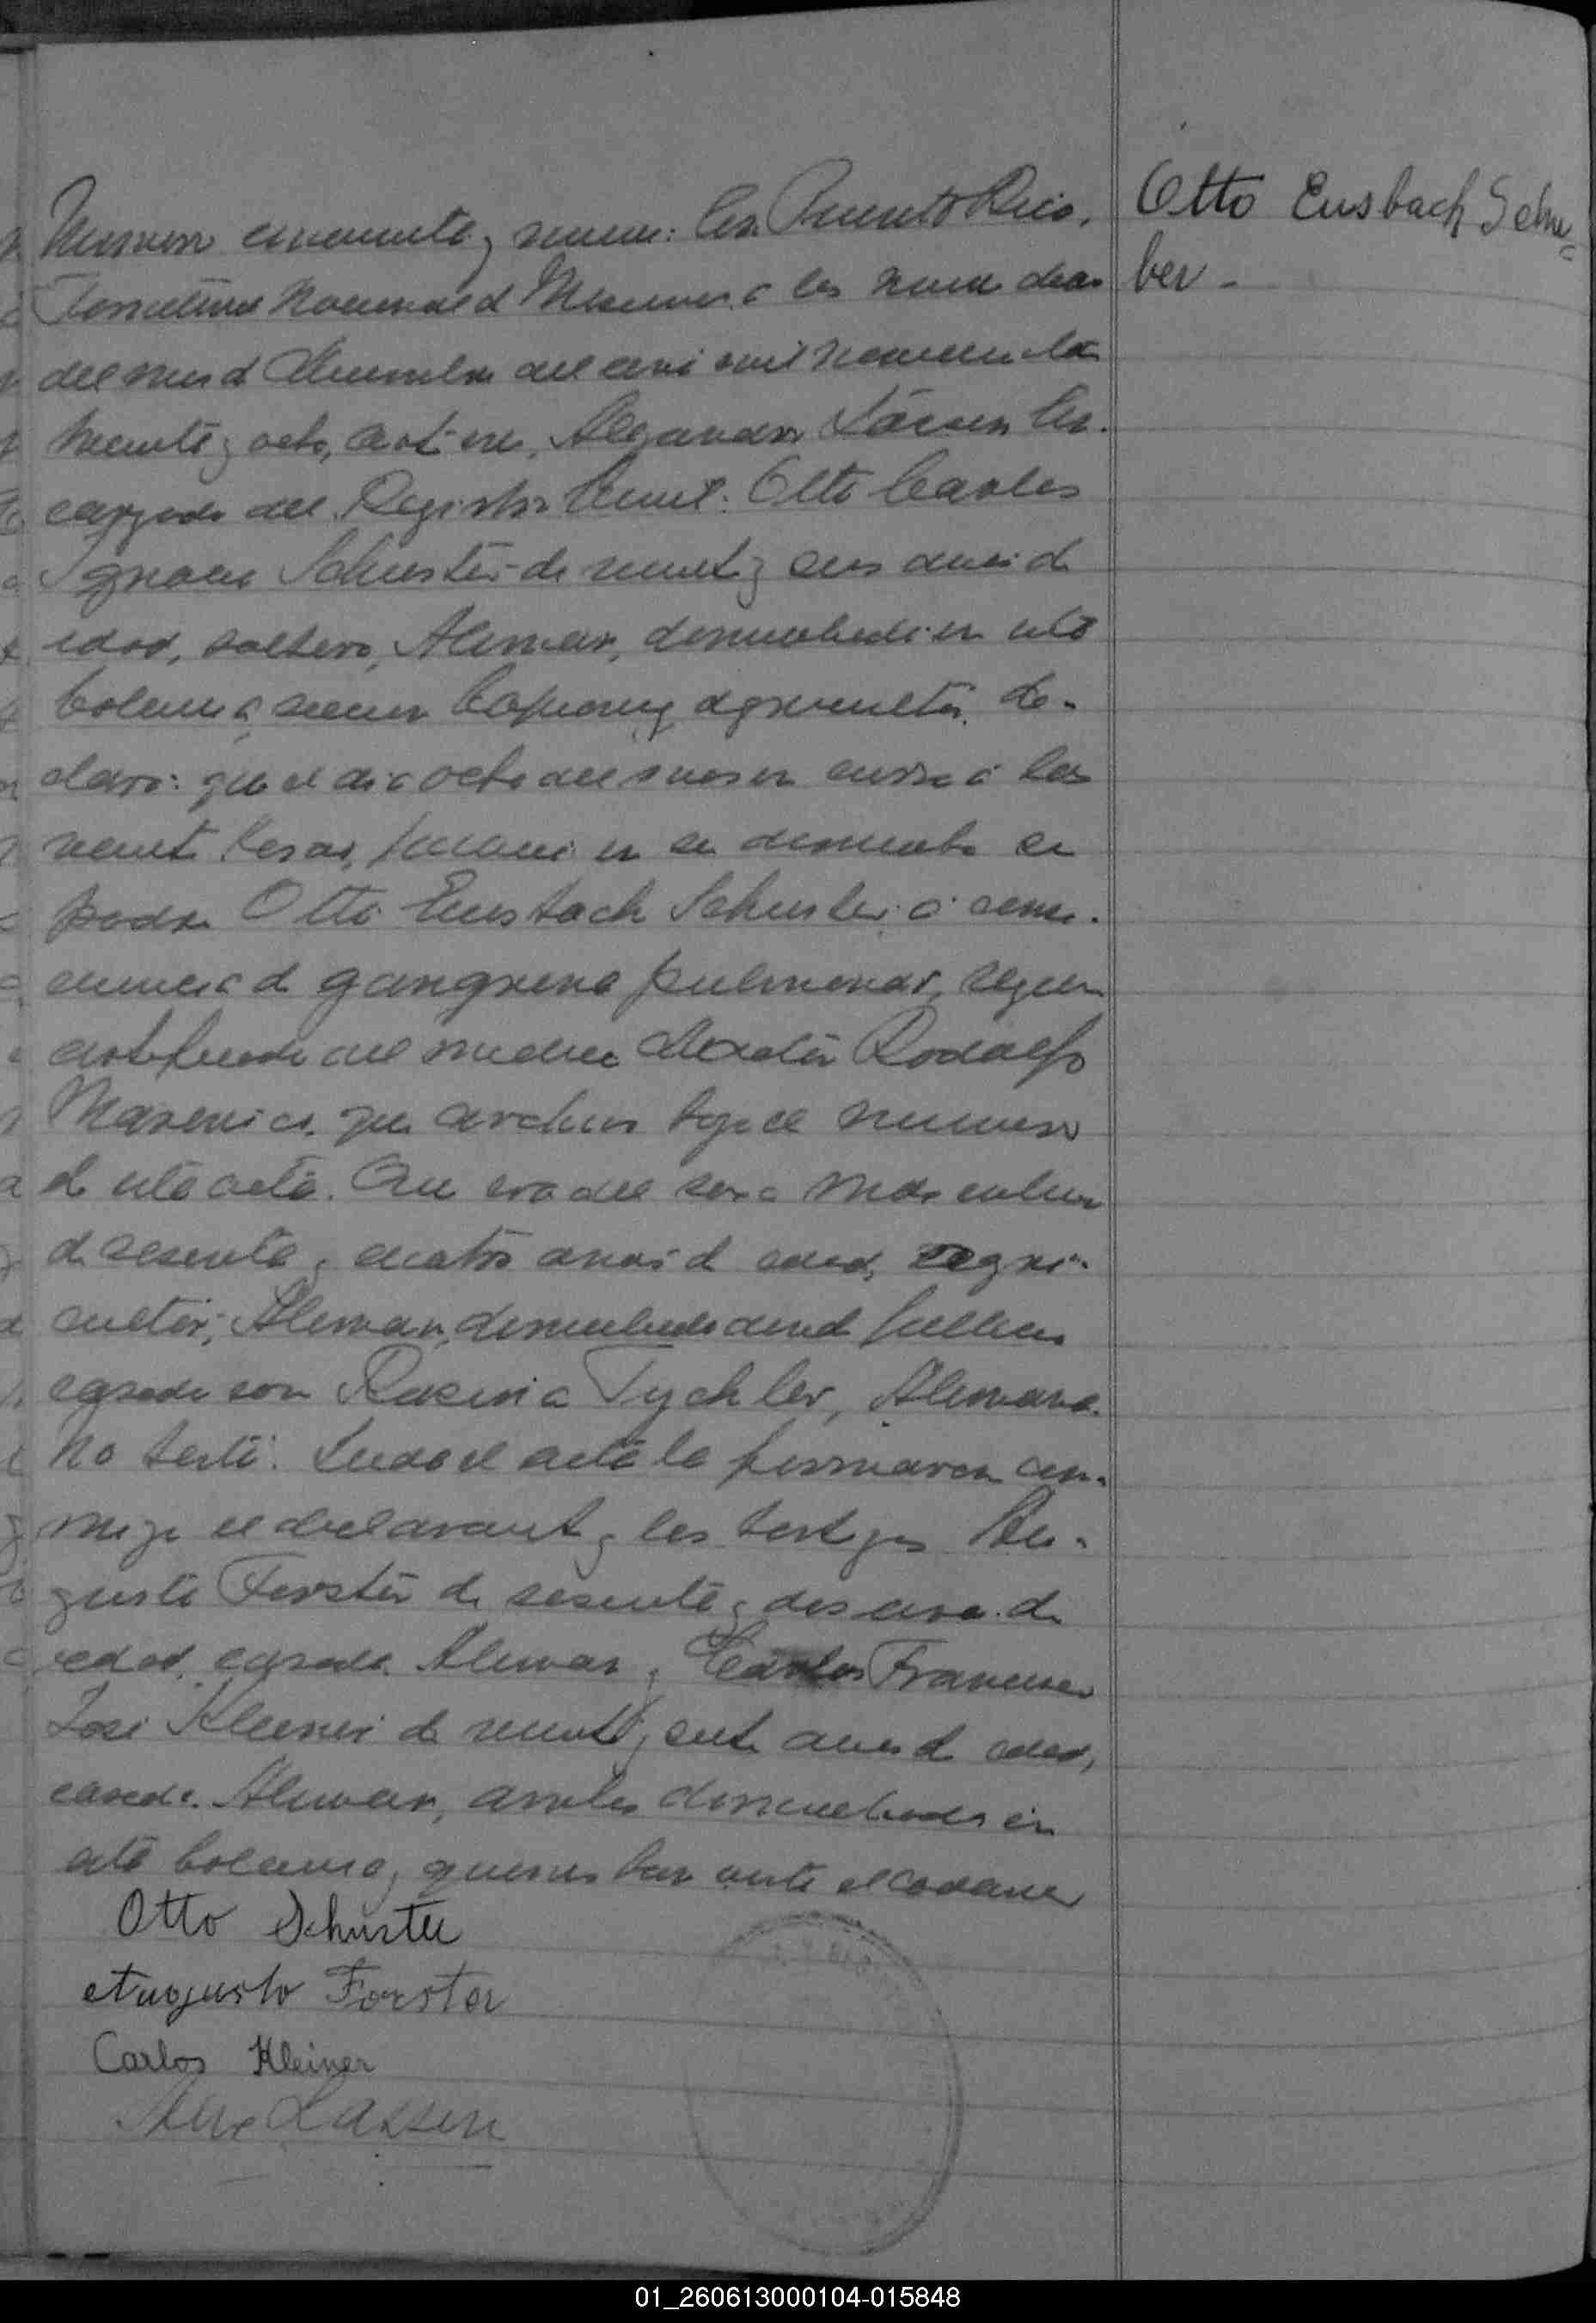 Numero cincuenta y nueve: En Puerto Rico,
Territorio Nacional de Misiones a los nueve dias
del mes de Diciembre del año mil novecientos
treinta y ocho, ante mi, Alejandro Lassen En-
cargado del Registro Civil: Otto Carlos
Ignacio Schuster de veinte y años de
edad, soltero, Aleman, domiciliado en esta
Colonia, agricultor, de-
claró: que el dia ocho del mes en curso a las
veinte horas, falleció en su domicilio su
padre Otto Eustach Schuster, a conse-
cuencia de gangrena pulmonar, segun
certificado del medico Doctor Rodolfo
que archivo bajo el numero
de esta acta. Que era del sexo masculino
de sesenta y cuatro años de edad, agri-
cultor, Aleman, domiciliado donde falleció
casado con Rosina Tychler, Alemana.
No testó. Leida el acta la firmaron con-
migo el declarante y los testigos Au-
gusto Forster de sesenta y dos años de
edad, casado, Aleman y Carlos Francisco
José Kleiner de veinte y siete años de edad,
casado, Aleman, ambos domiciliados en
esta Colonia, quienes han visto el cadaver
Otto Schuster
Augusto Forster
Carlos Kleiner
Alex Lassen
Otto Eusbach Schu=
ber -
01_260613000104-015848